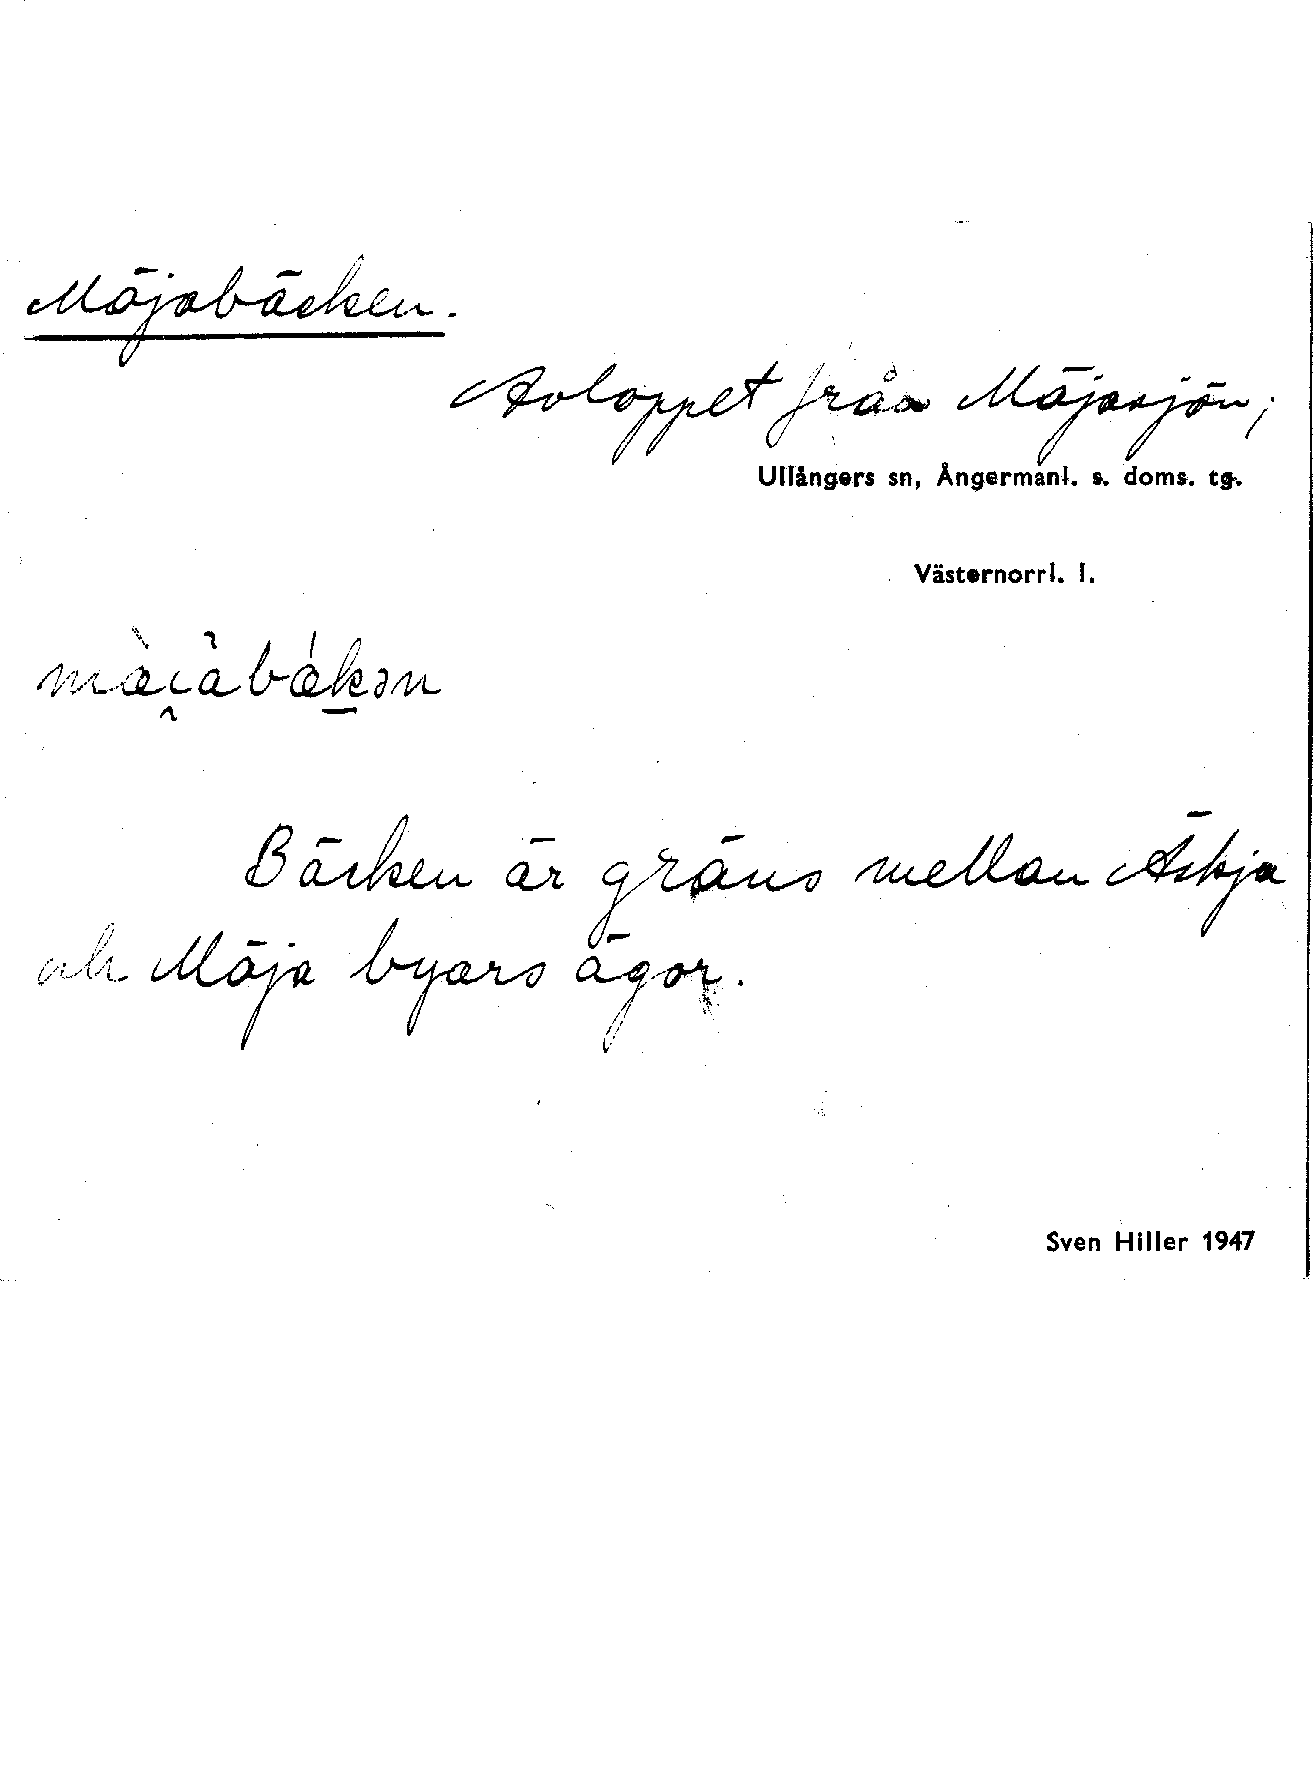 Mäjabäcken.
Avloppet från Mäjasjön;
Ullångers sn, Ångermanl. s. doms. tg.
Västernorrl. l.
mæ̀i̯àbǽk̲ən
Bäcken är gräns mellan Äskja
och Mäja byars ägor.
Sven Hiller 1947